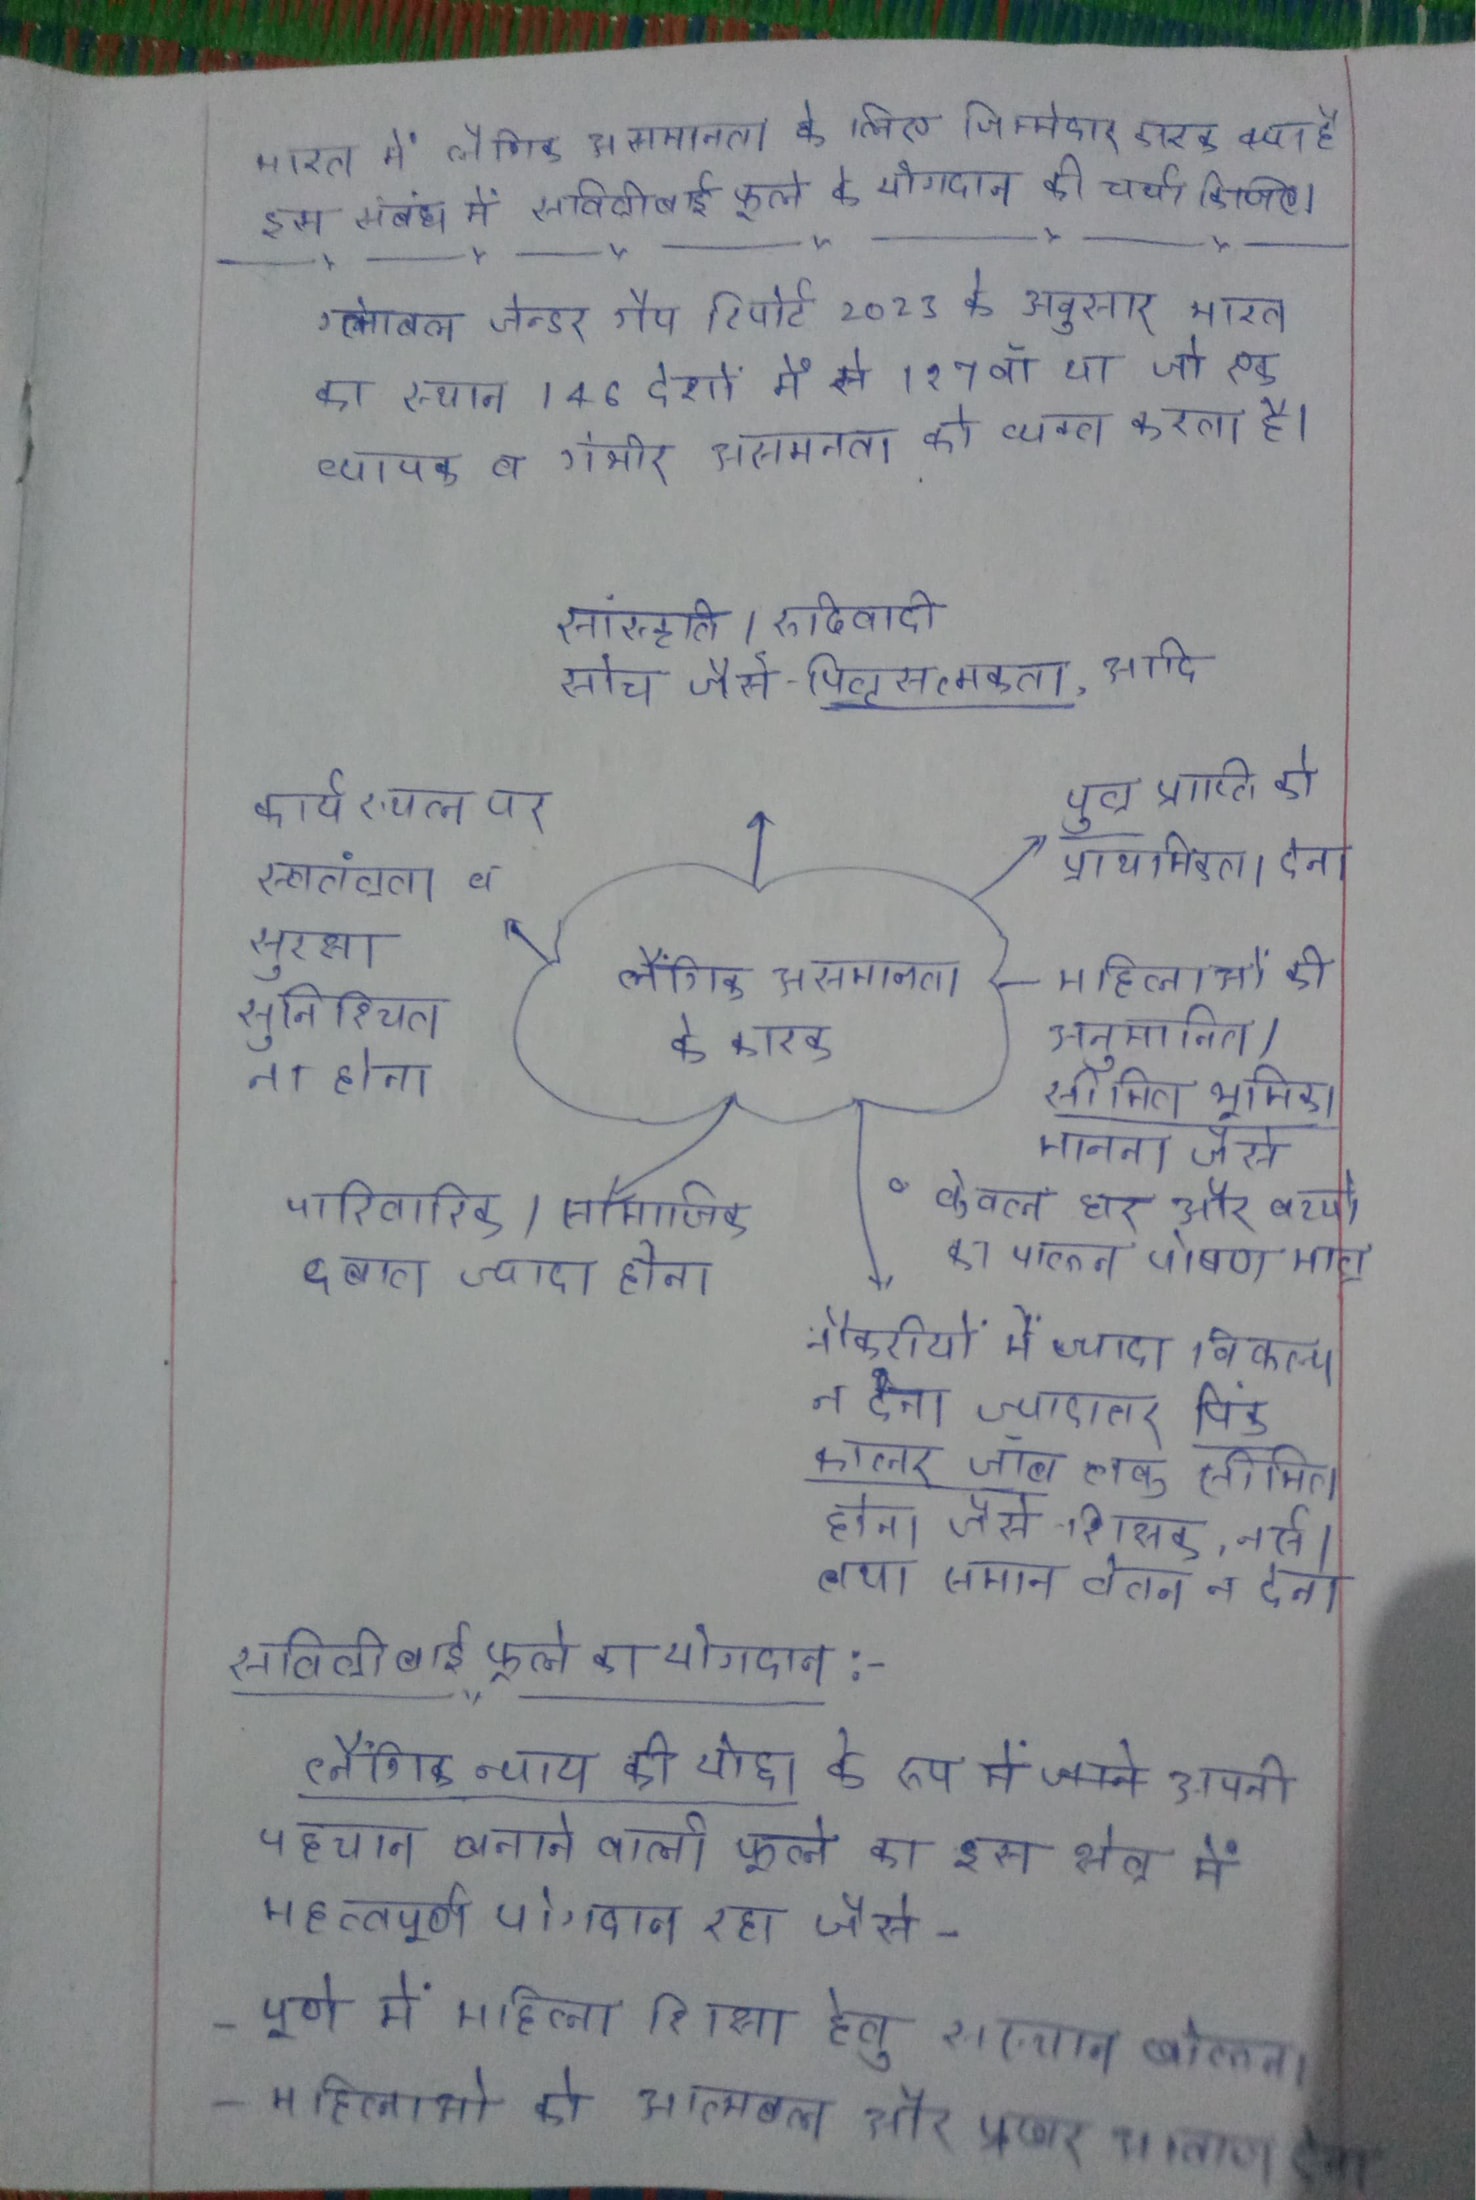 भारत में लैंगिक असमानता के लिए जिम्मेदार कारक क्या है
इस संबंध में सावित्रीबाई फूले के योगदान की चर्चा किजिए।
ग्लोबल जेन्डर गैप रिपोर्ट 2023 के अनुसार भारत
का स्थान 146 देशों में से 127वाॅ था जो एक
व्यापक व गंभीर असमनता को व्यक्त करता है।
सांस्कृति / रूढिवादी
सोच जैसे - पितृसत्मकता, आदि
पुत्र प्राप्ति को
प्राथमिकता देना
कार्यस्थल पर
स्वतंत्रता व
सुरक्षा
सुनिश्चित
ना होना
लैंगिक असमानता
के कारक
महिलाओं की
अनुमानित /
सीमित भूमिका
मानना जैसे
• केवल घर और बच्चों
का पालन पोषण मात्र
पारिवारिक / सामाजिक
दबाव ज्यादा होना
नौकरीयों में ज्यादा विकल्प
न देना ज्यादातर पिंक
कालर जॉब तक सीमित
होना जैसे - शिक्षक, नर्स।
तथा समान वेतन न देना
सावित्रीबाई फूले का योगदान :-
लैंगिक न्याय की योद्धा के रूप में अपनी
पहचान बनाने वाली फूले का इस क्षेत्र में
महत्वपूर्ण योगदान रहा जैसे -
- पूणे में महिला शिक्षा हेतु संस्थान खोलना
- महिलाओ को आत्मबल और प्रखर आवाज देना